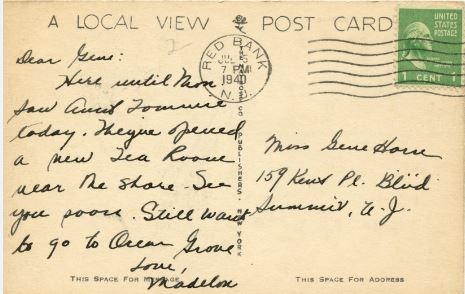 A LOCAL VIEW POST CARD
UNITED STATES
POSTAGE
1 CENT 1
RED BANK
JUL 5
7 PM
1940
N.J.
Dear Gene:
Here until Mon
saw Aunt Tommie
today. They've opened
a new Tea Room
near the shore. See
you soon. Still want
to go to Ocean Grove
Love,
Madelon
CO PUBLISHERS - NEW YORK
Miss Gene Horn
159 Kent Pl. Blvd.
Summit, N.J.
THIS SPACE FOR MESSAGE
THIS SPACE FOR ADDRESS